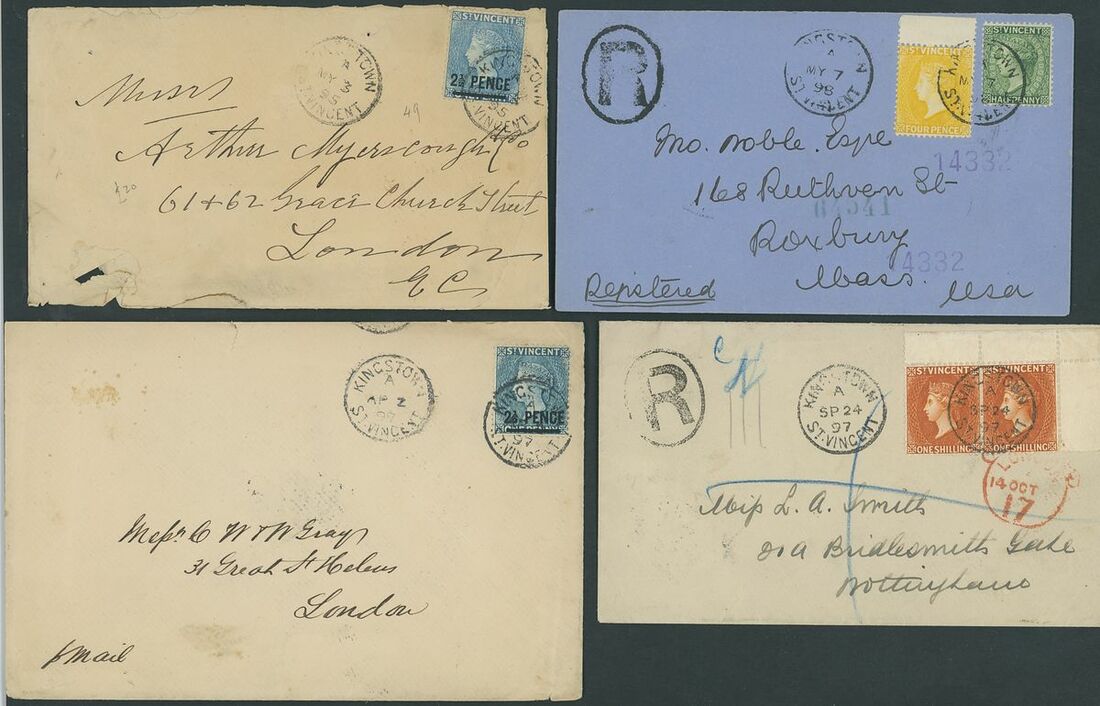 ST VINCENT
2½ PENCE
KINGSTOWN
A
MY 3
95
ST. VINCENT
KINGSTOWN
VINCENT
49
£20
Messrs
Arthur Myerscough & Co
61 & 62 Grace Church Street
London
E C
R
KINGSTOWN
A
MY 7
98
ST. VINCENT
ST VINCENT
FOUR PENCE
ST VINCENT
HALFPENNY
KINGSTOWN
A
ST. VINCENT
Mo. Noble. Esqre
14332
168 Ruthven St
Roxbury
14332
Mass.
USA
Registered
KINGSTOWN
A
AP 2
ST. VINCENT
ST VINCENT
2½ PENCE
ONE PENNY
KINGSTOWN
A
97
ST. VINCENT
Messrs C W & W Gray
31 Great St Helens
London
p Mail
R
KINGSTOWN
A
SP 24
97
ST. VINCENT
ST VINCENT
ST VINCENT
ONE SHILLING
ONE SHILLING
KINGSTOWN
A
SP 24
97
ST. VINCENT
LONDON
14 OCT
17
Miss L. A. Smith
21a Bridlesmith Gate
Nottingham